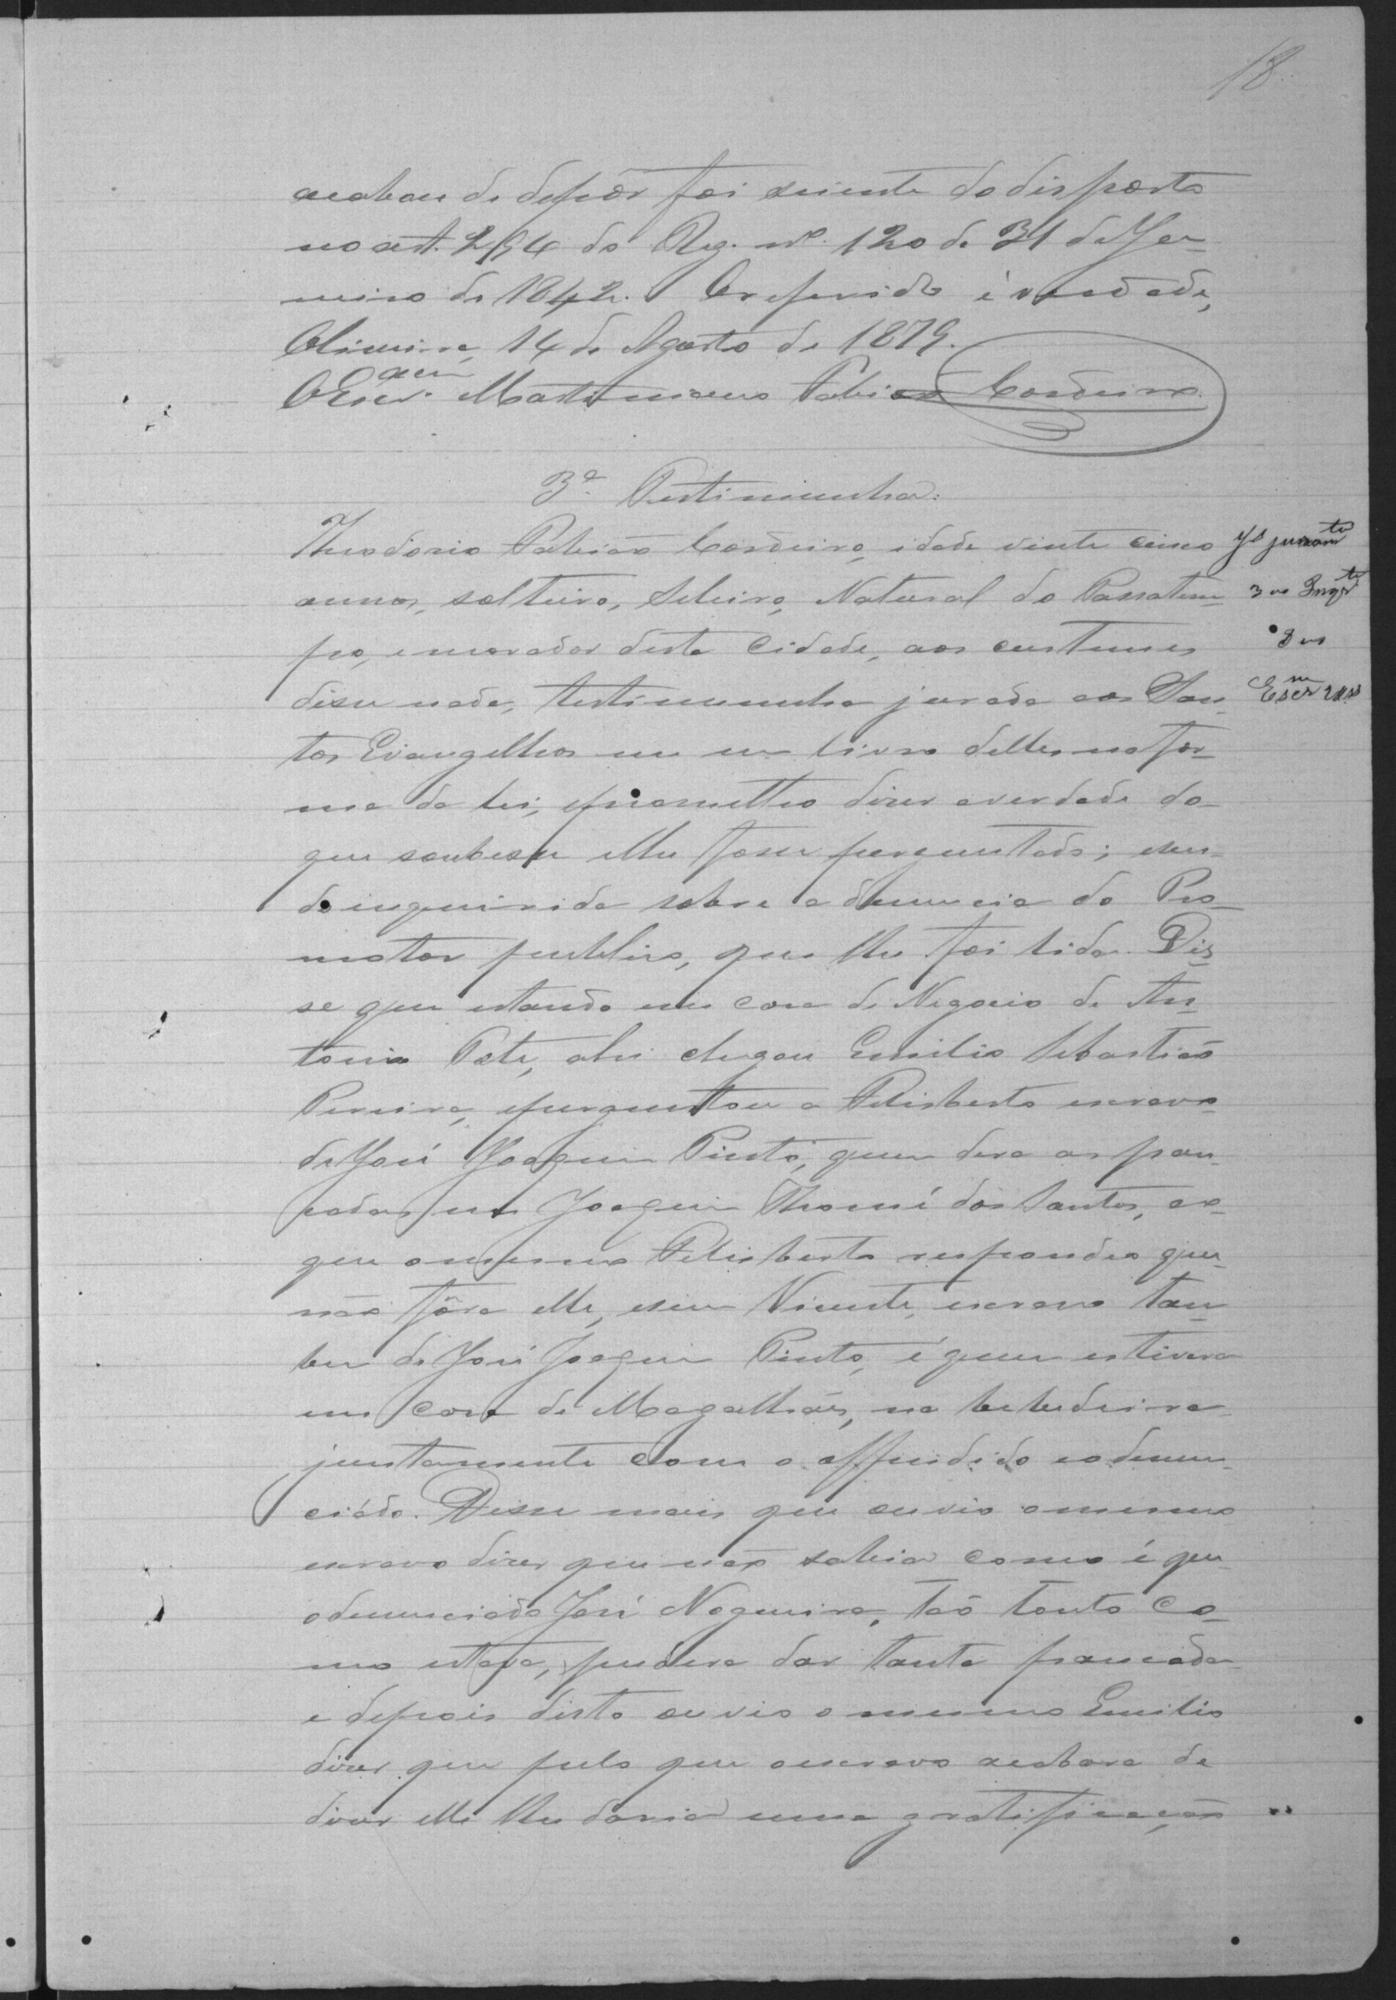 18
acabou de depôr foi sciente do disposto
no art. 294 do Reg. nº. 120 de 31 de Ja-
neiro de 1842. O referido é verdade,
Oliveira, 14 de Agosto de 1879.
O Escr.am Martiniano Fabião Cordeiro.
3ª Testimunha:
Theodosio Fabião Cordeiro, idade vinte cinco
annos, solteiro, Seleiro, Natural do Passatem-
po, e morador desta Cidade, aos custumes
disse nada, testimunha jurada aos San-
tos Evangelhos em um livro delles na for-
ma da lei, e prometteo dizer a verdade do
que soubesse e lhe fosse perguntado; e sen-
do inquirida sobre a denuncia do Pro-
motor publico, que lhe foi lida. Dis-
se que estando em casa de Negocio de An-
tonio Pate, ahi chegou Emilio Sebastião
Pereira, e perguntou a Felisberto escravo
de José Joaquim Pinto, quem dera as pan-
cadas em Joaquim Thomé dos Santos, ao
que o mesmo Felisberto respondeo que
não fôra elle, e sim Vicente, escravo tam-
bem de José Joaquim Pinto, é quem estivera
em casa de Magalhães, na bebedeira
juntamente com o offendido e o denun-
ciádo. Disse mais que ouvio o mesmo
escravo dizer que não sabia como é que
o denunciado José Nogueira, tão tonto co-
mo estava, pudera dar tanta pancada
e depois disto ouvio o mesmo Emilio
dizer que pelo que o escravo acabava de
dizer elle lhe daria uma gratificação
juramto
3 Inqrto
Escrm